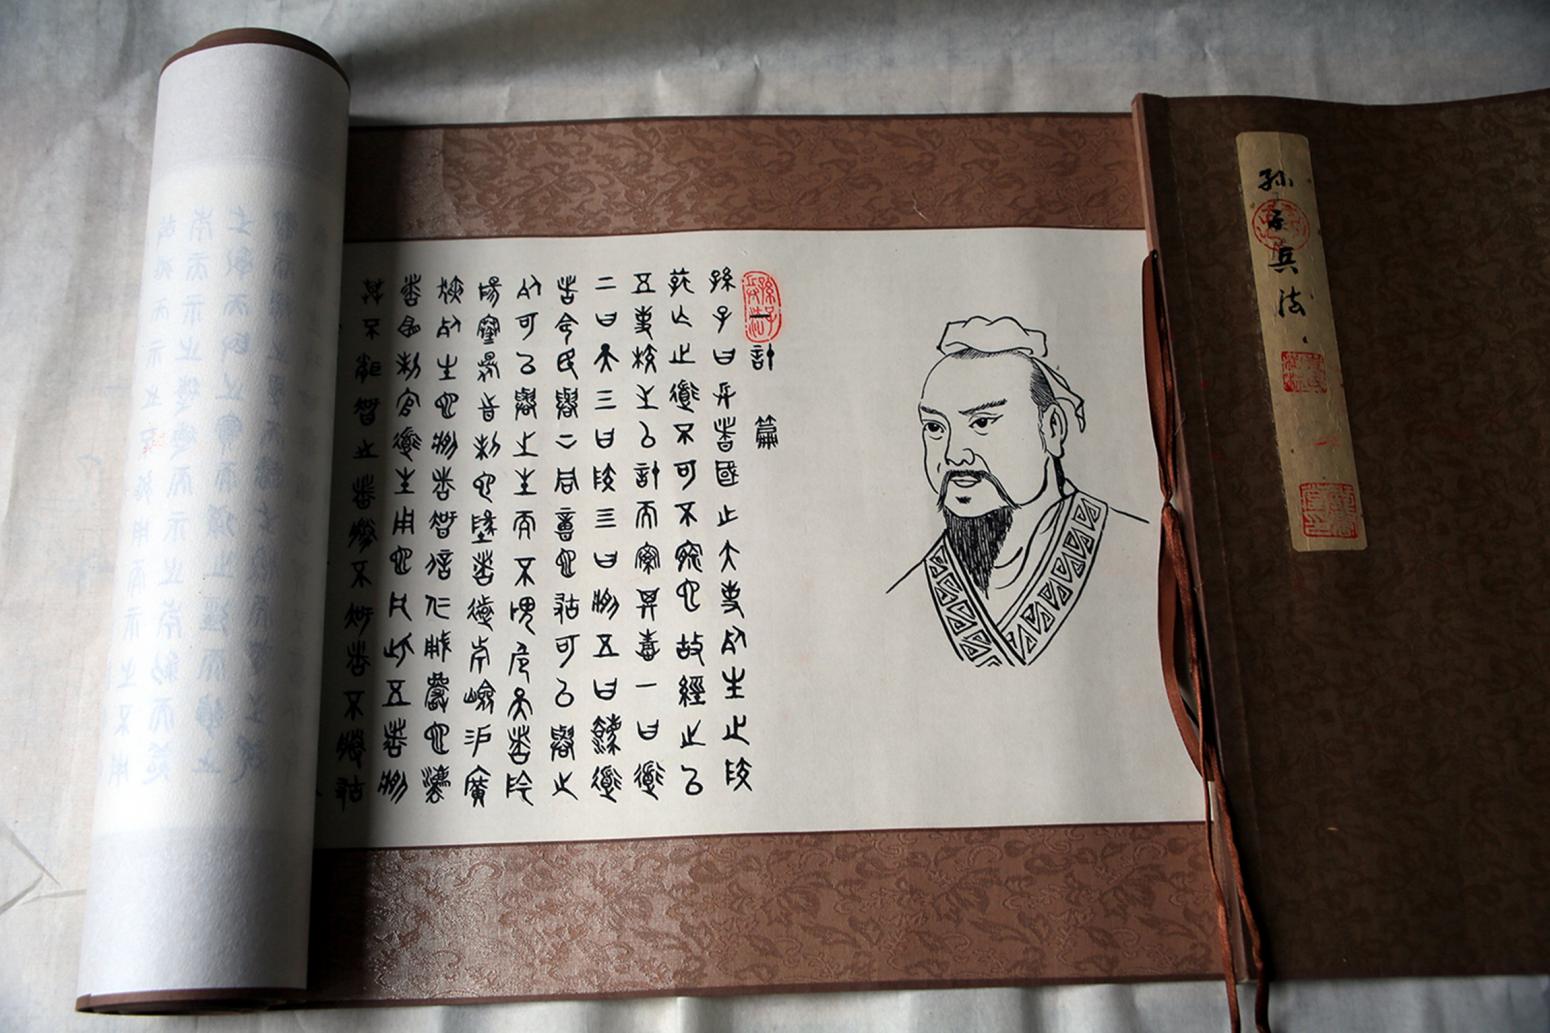 孙子兵法
一
一計篇
孫子曰兵者國之大事死生之地
存亡之道不可不察也故經之以
五事校之以計而索其情一曰道
二曰天三曰地四曰將五曰法道
者令民與上同意也故可以與之
死可以與之生而不畏危天者陰
陽寒暑時制也地者遠近險易廣
狹死生也將者智信仁勇嚴也法
者曲制官道主用也凡此五者將
莫不聞知之者勝不知者不勝故